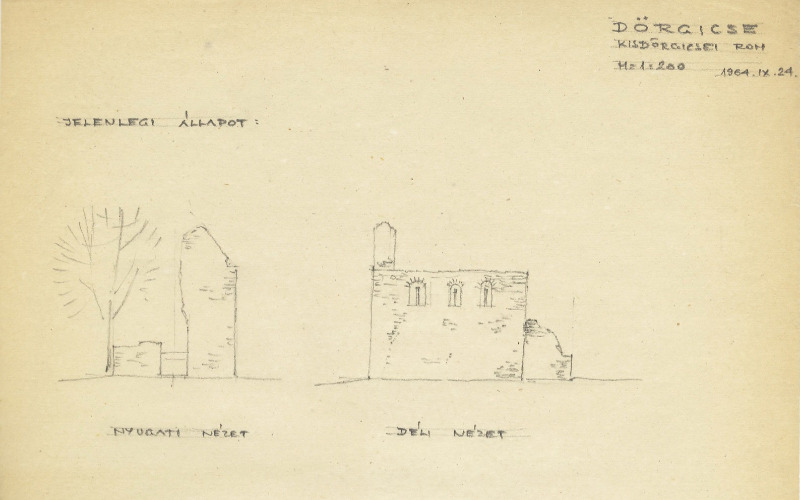 DÖRGICSE
KISDÖRGICSEI ROM
M=1:200 1964.IX.24.
JELENLEGI ÁLLAPOT:
NYUGATI NÉZET
DÉLI NÉZET